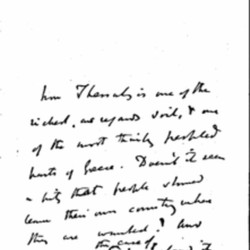 now Thessaly is one of the
richest, as regards soil, & one
of the most thinly peopled
parts of Greece. Doesn't it seem
a pity that people should
leave their own country where
they are wanted? And